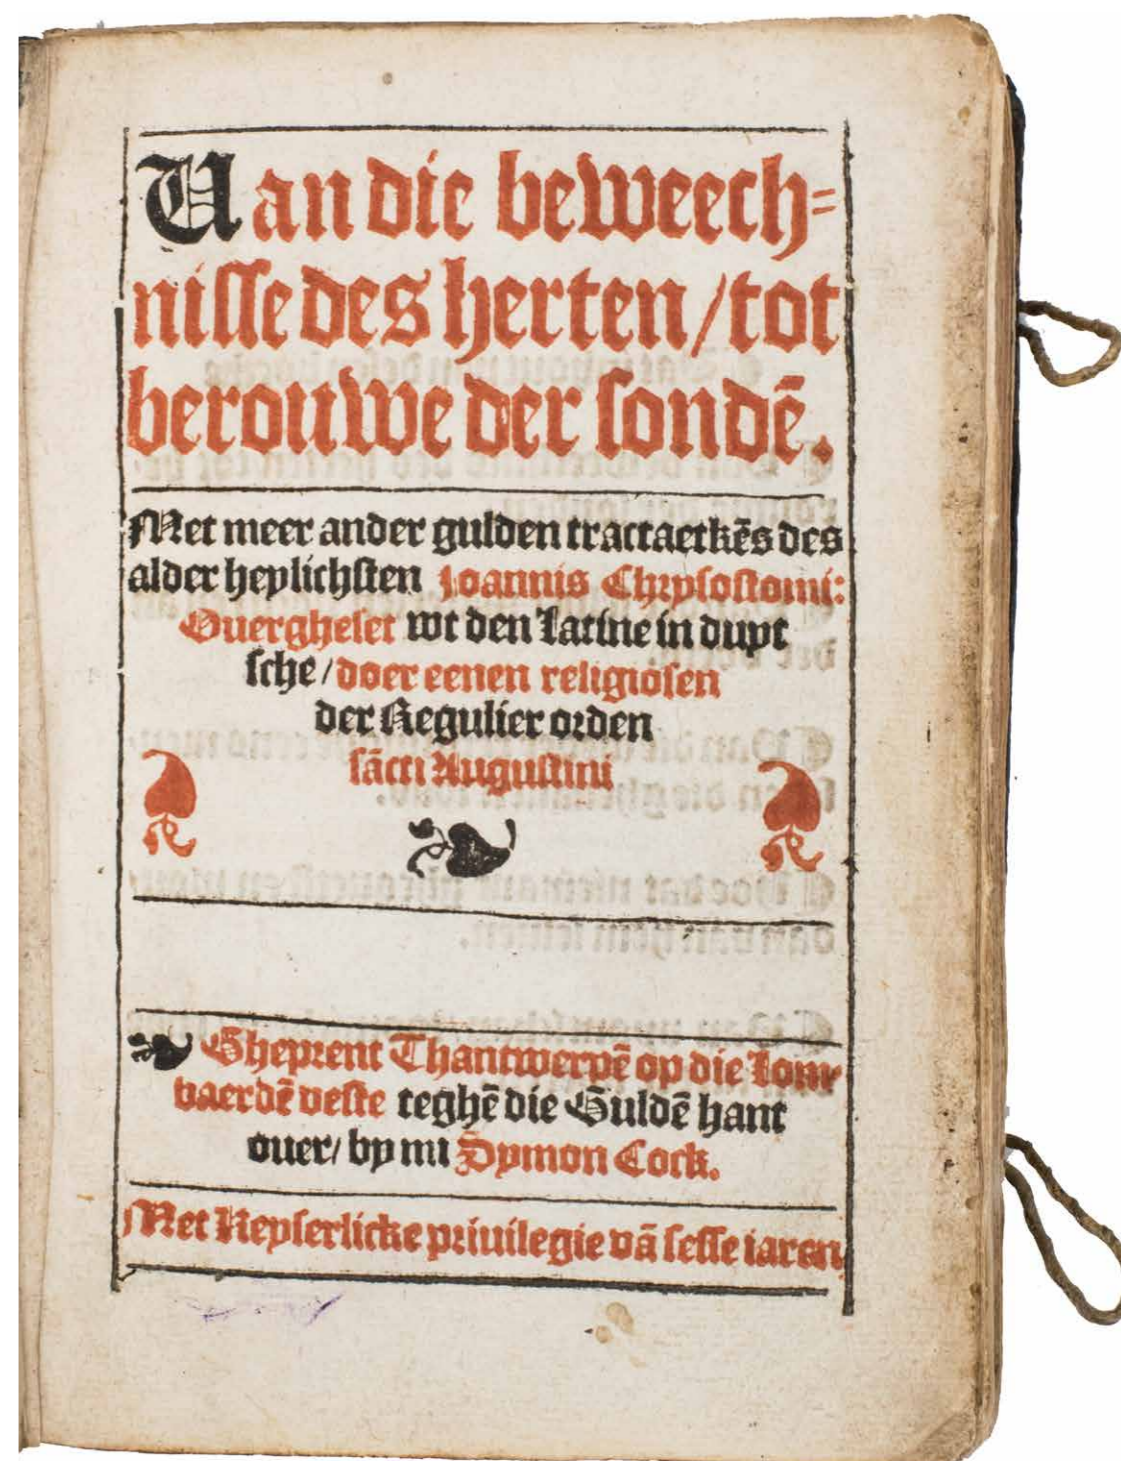 Uan die beweech=
nisse des herten / tot
berouwe der sondē.
Met meer ander gulden tractaetkēs des
alder heylichsten Joannis Chrysostomi:
Ouergheset wt den Latine in duyt
sche / doer eenen religiosen
der Regulier orden
sācti Augustini
Gheprent Thantwerpē op die Lom
baerdē veste teghē die Guldē hant
ouer / by mi Symon Cock.
Met Keyserlicke priuilegie vā sesse iaren